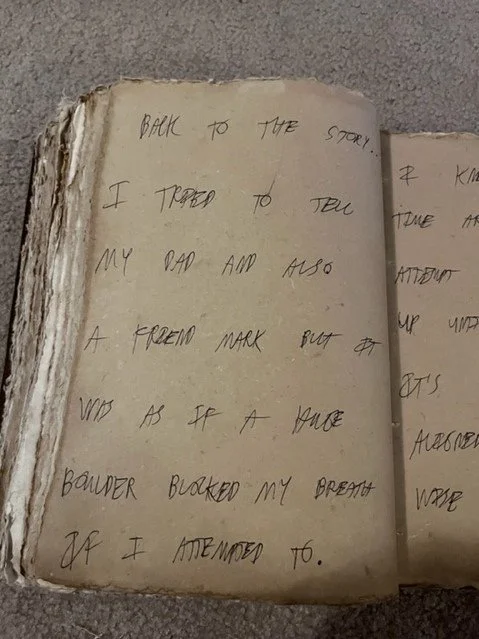 BACK TO THE STORY...
I TRIED TO TELL
MY DAD AND ALSO
A FRIEND MARK BUT IT
WAS AS IF A HUGE
BOULDER BLOCKED MY BREATH
IF I ATTEMPTED TO.
I KN
TIME AR
ATTEMPT
UP UNTI
IT'S
ALIGNED
WISE